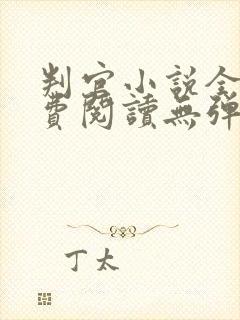 判官小說全
費閱讀無彈
丁太